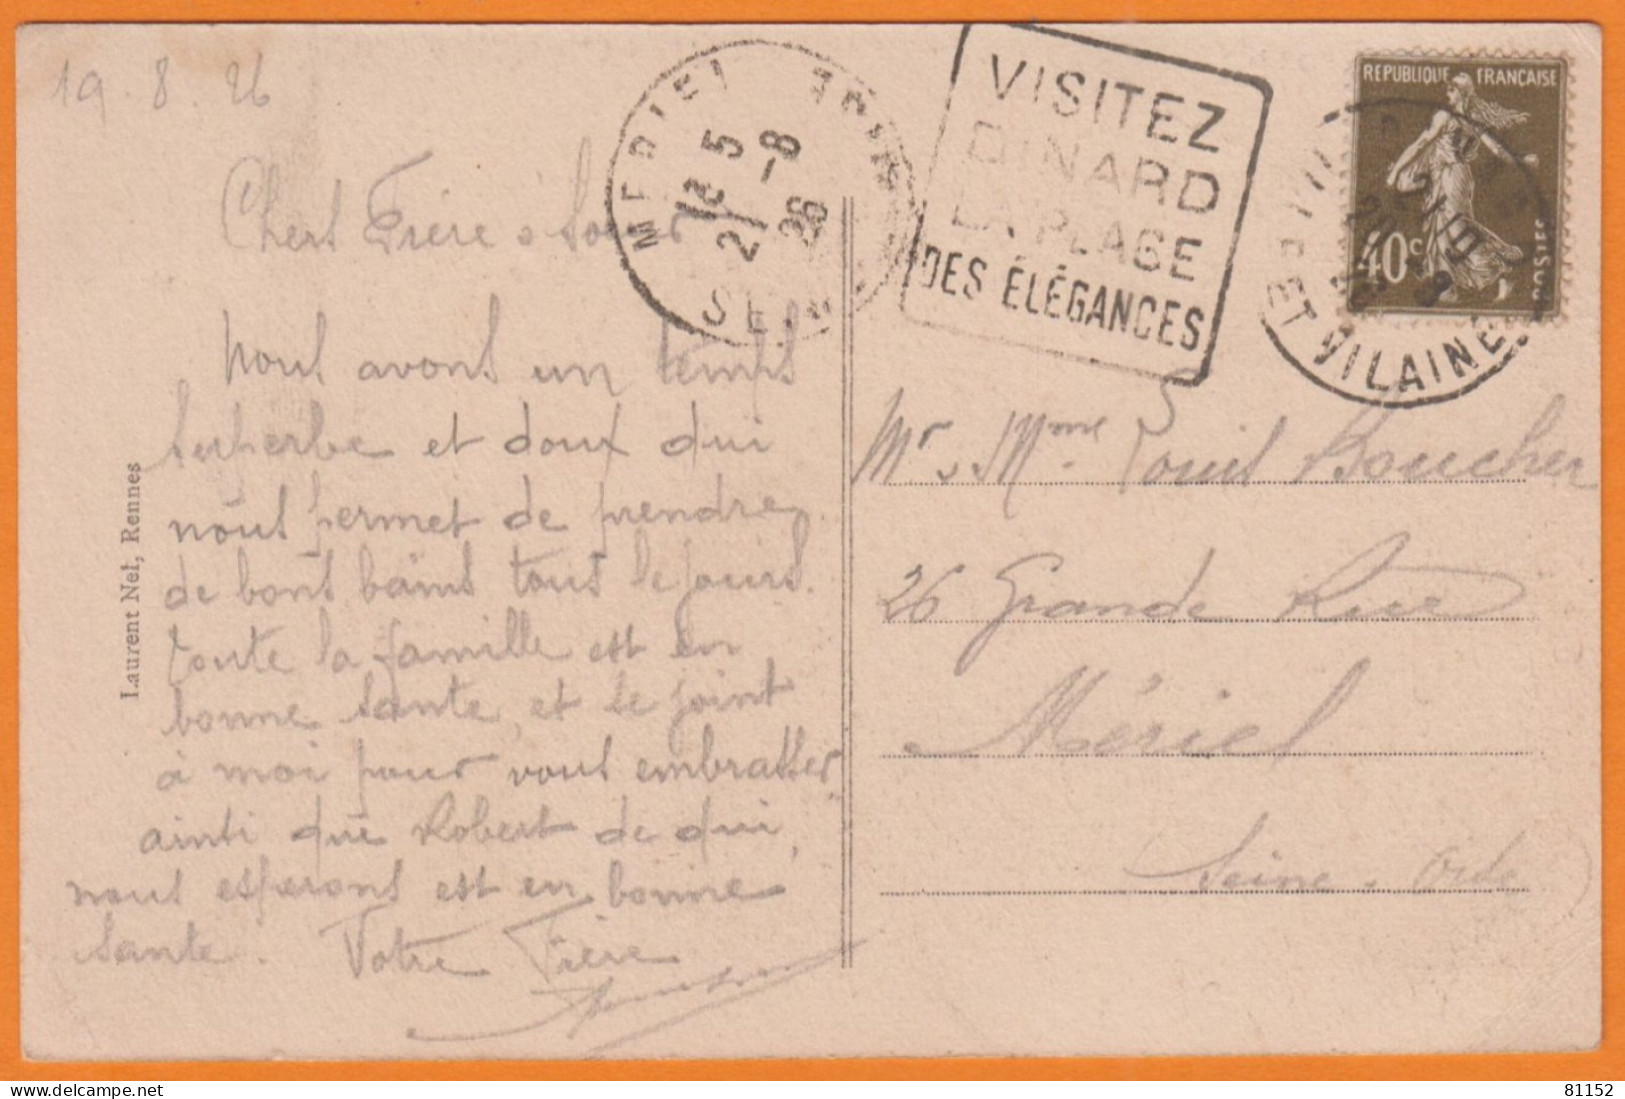 19.8.26
Chers Frère & Soeur
Nous avons un temps
superbe et doux qui
nous permet de prendre
de bons bains tous les jours.
toute la famille est en
bonne santé, et se joint
à moi pour vous embrasser
ainsi que Robert de qui,
nous espérons est en bonne
santé. Votre Frère
Laurent Nel, Rennes
MERIEL
18 5
21 -8
26
SEINE
VISITEZ
DINARD
LA PLAGE
DES ÉLÉGANCES
REPUBLIQUE FRANÇAISE
40c
POSTES
ET VILAINE
Mr & Mme Louis Boucher
26 Grande Rue
Mériel
Seine & Oise
81152
delcampe.net